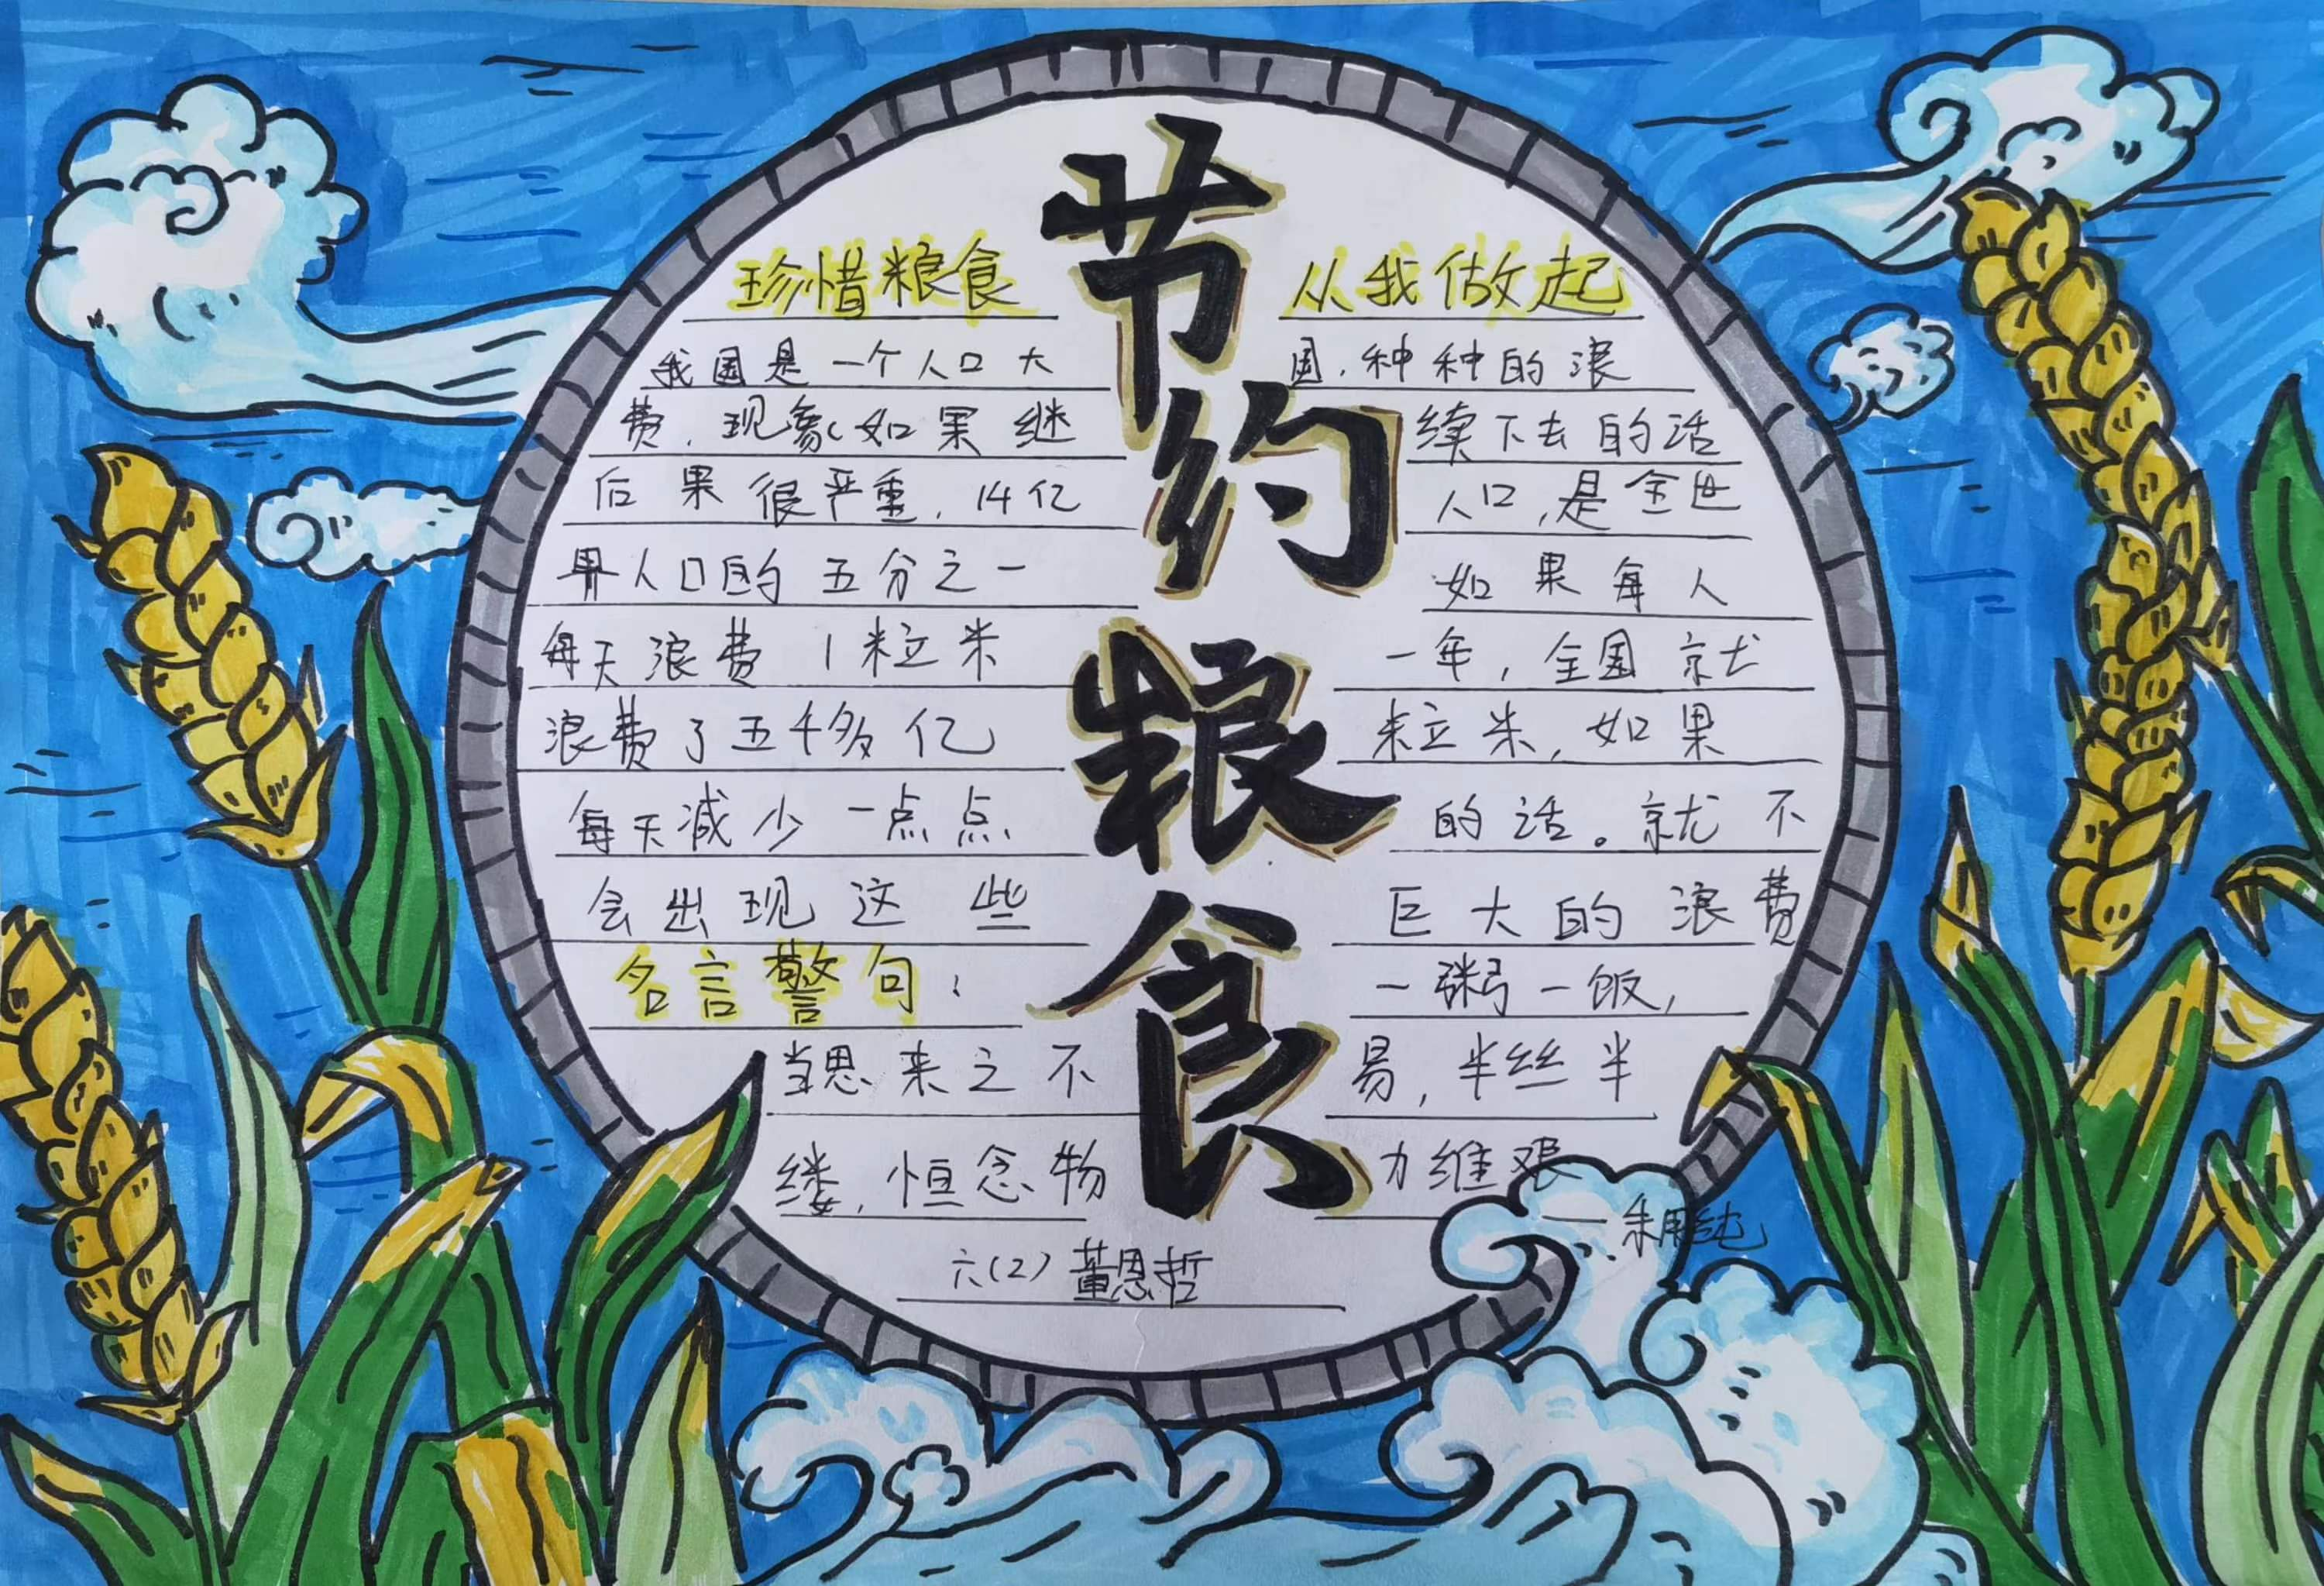 节约粮食
珍惜粮食 从我做起
我国是一个人口大国.种种的浪
费.现象如果继续下去的话
后果很严重,14亿人口,是全世
界人口的五分之一如果每人
每天浪费1粒米一年,全国就
浪费了五千多亿粒米,如果
每天减少一点点的话。就不
会出现这些巨大的浪费
名言警句:一粥一饭,
当思来之不易,半丝半
缕,恒念物力维艰
——朱用纯
六(2) 董恩哲